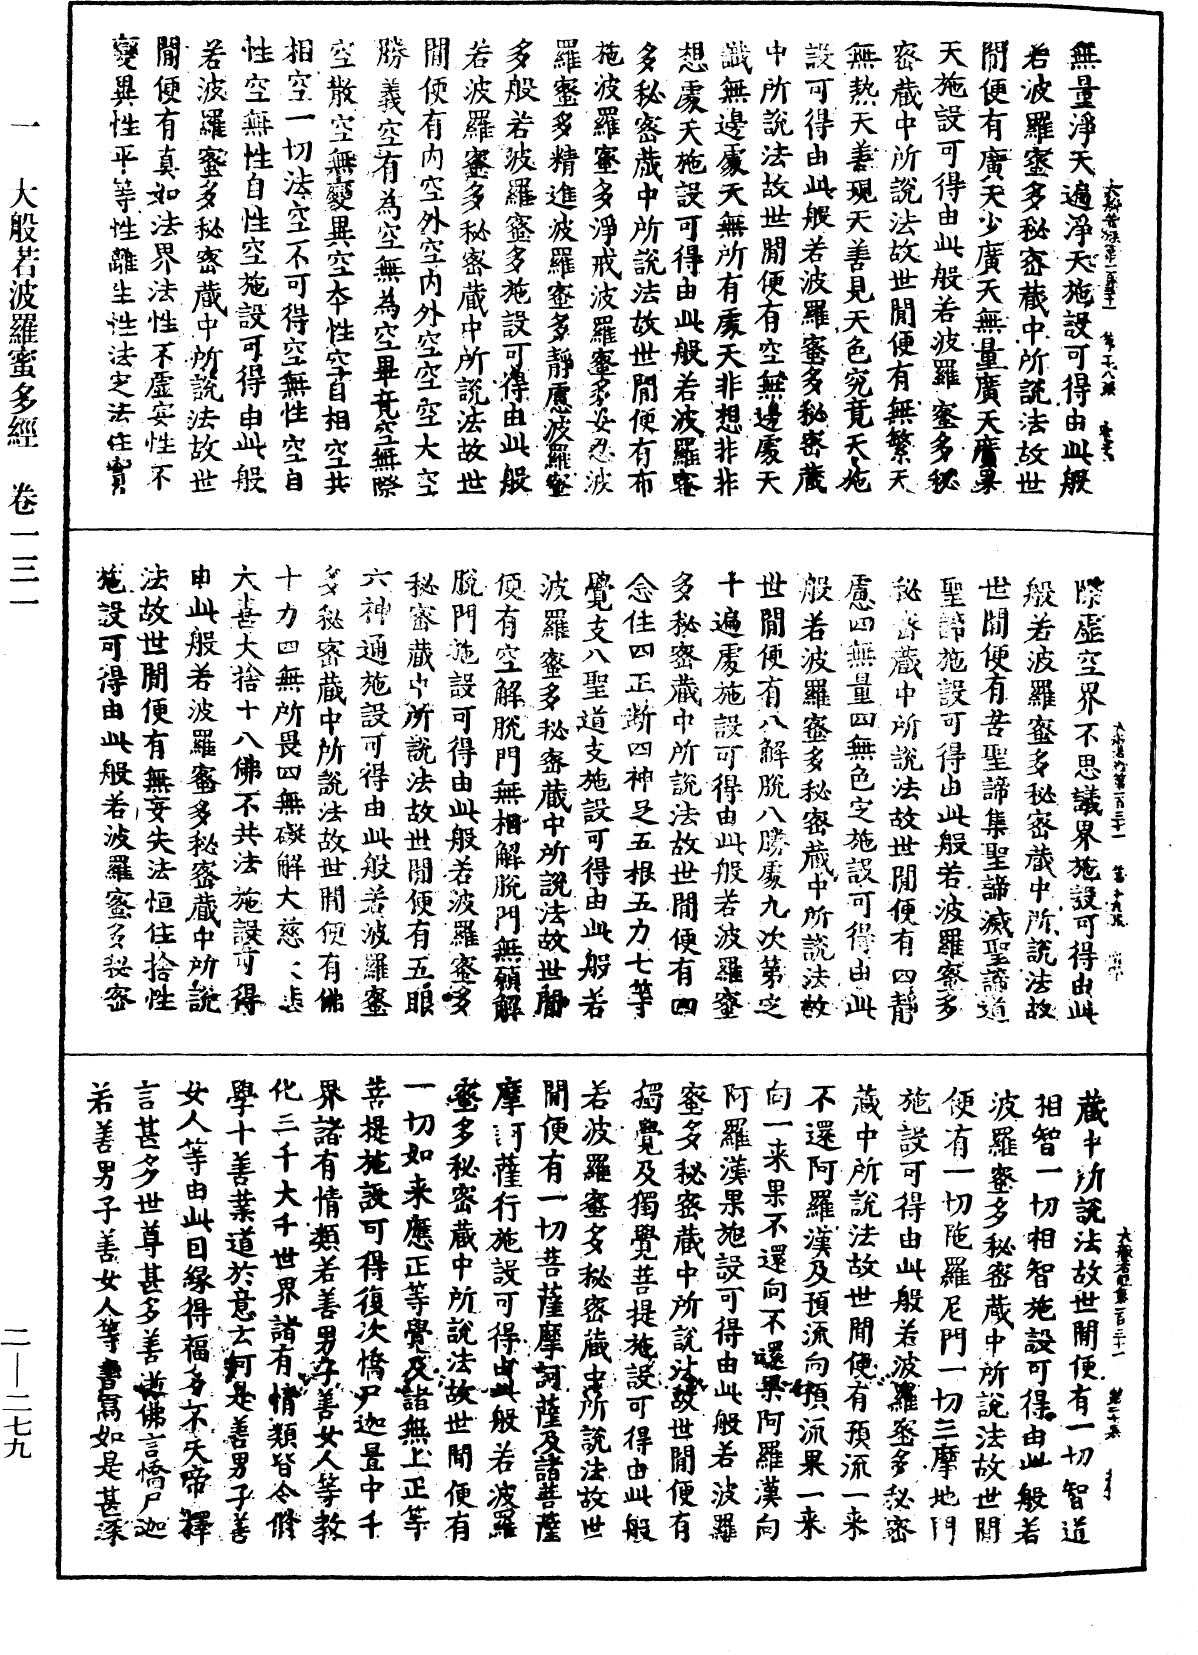 一 大般若波羅蜜多經 卷一三一
無量淨天遍淨天施設可得由此般
若波羅蜜多秘密藏中所說法故世
間便有廣天少廣天無量廣天廣果
天施設可得由此般若波羅蜜多秘
密藏中所說法故世間便有無繁天
無熱天善現天善見天色究竟天施
設可得由此般若波羅蜜多秘密藏
中所說法故世間便有空無邊處天
識無邊處天無所有處天非想非非
想處天施設可得由此般若波羅蜜
多秘密藏中所說法故世間便有布
施波羅蜜多淨戒波羅蜜多安忍波
羅蜜多精進波羅蜜多靜慮波羅蜜
多般若波羅蜜多施設可得由此般
若波羅蜜多秘密藏中所說法故世
間便有內空外空內外空空空大空
勝義空有為空無為空畢竟空無際
空散空無變異空本性空自相空共
相空一切法空不可得空無性空自
性空無性自性空施設可得由此般
若波羅蜜多秘密藏中所說法故世
間便有真如法界法性不虛妄性不
變異性平等性離生性法定法住實
際虛空界不思議界施設可得由此
般若波羅蜜多秘密藏中所說法故
世間便有苦聖諦集聖諦滅聖諦道
聖諦施設可得由此般若波羅蜜多
秘密藏中所說法故世間便有四靜
慮四無量四無色定施設可得由此
般若波羅蜜多秘密藏中所說法故
世間便有八解脫八勝處九次第定
十遍處施設可得由此般若波羅蜜
多秘密藏中所說法故世間便有四
念住四正斷四神足五根五力七等
覺支八聖道支施設可得由此般若
波羅蜜多秘密藏中所說法故世間
便有空解脫門無相解脫門無願解
脫門施設可得由此般若波羅蜜多
秘密藏中所說法故世間便有五眼
六神通施設可得由此般若波羅蜜
多秘密藏中所說法故世間便有佛
十力四無所畏四無礙解大慈大悲
大喜大捨十八佛不共法施設可得
由此般若波羅蜜多秘密藏中所說
法故世間便有無妄失法恒住捨性
施設可得由此般若波羅蜜多秘密
藏中所說法故世間便有一切智道
相智一切相智施設可得由此般若
波羅蜜多秘密藏中所說法故世間
便有一切陁羅尼門一切三摩地門
施設可得由此般若波羅蜜多秘密
藏中所說法故世間便有預流一来
不還阿羅漢及預流向預流果一来
向一来果不還向不還果阿羅漢向
阿羅漢果施設可得由此般若波羅
蜜多秘密藏中所說法故世間便有
獨覺及獨覺菩提施設可得由此般
若波羅蜜多秘密藏中所說法故世
間便有一切菩薩摩訶薩及諸菩薩
摩訶薩行施設可得由此般若波羅
蜜多秘密藏中所說法故世間便有
一切如来應正等覺及諸無上正等
菩提施設可得復次憍尸迦置中千
界諸有情類若善男子善女人等教
化三千大千世界諸有情類皆令修
學十善業道於意云何是善男子善
女人等由此因緣得福多不天帝釋
言甚多世尊甚多善逝佛言憍尸迦
若善男子善女人等書寫如是甚深
二—二七九